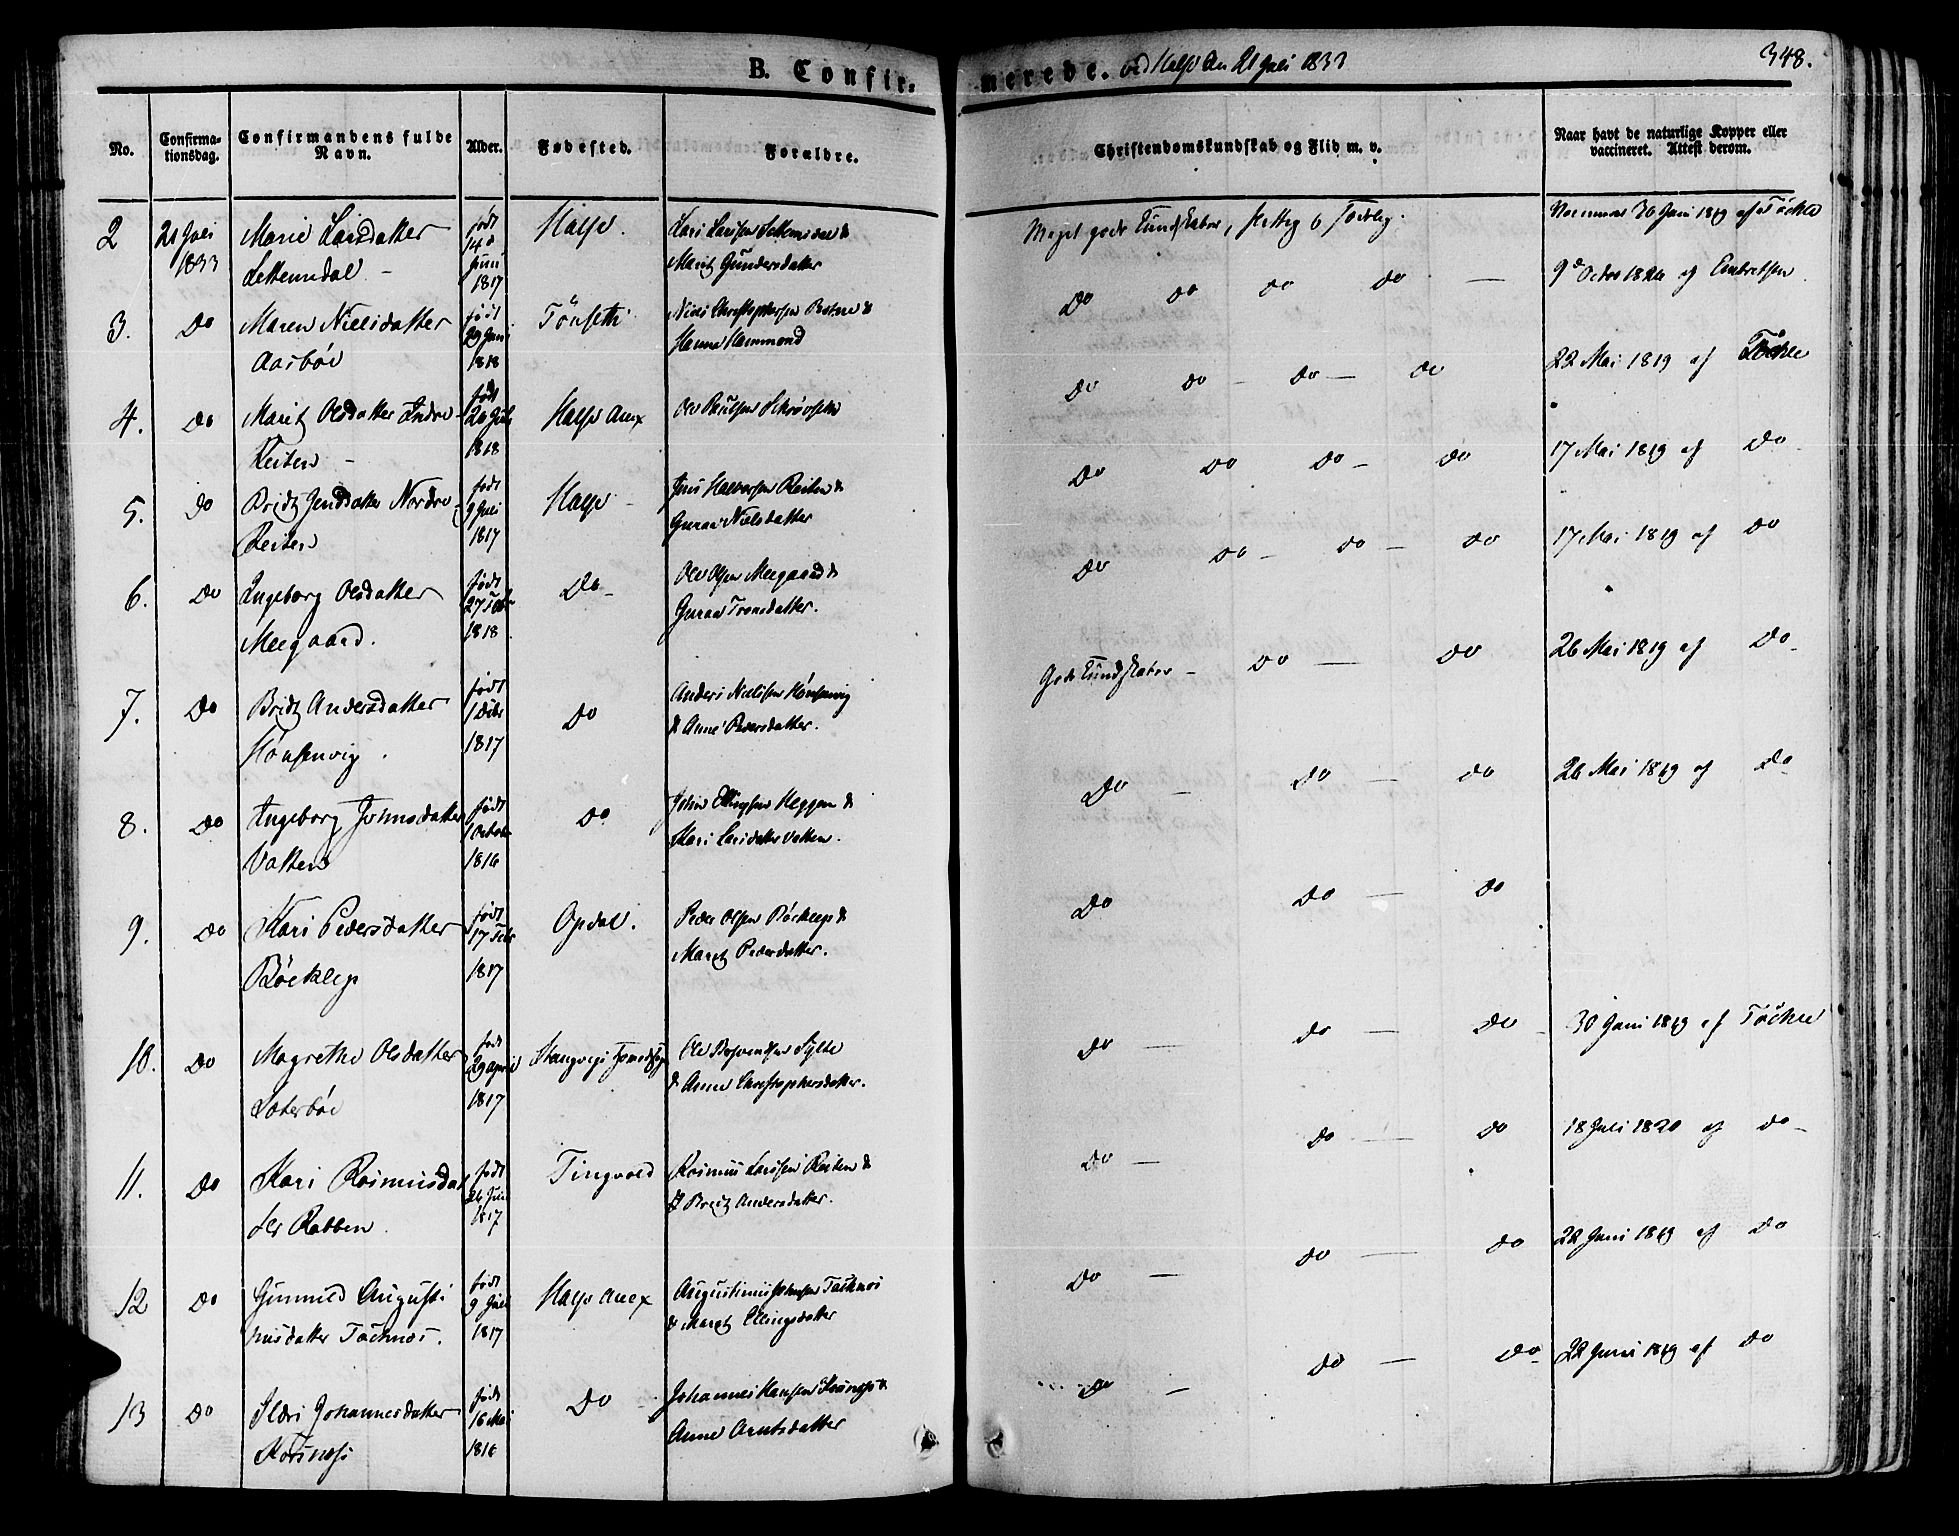 B. Confir- merede. ved Halse den 21 Juli 1833
348.
No. Confirma-tionsdag. Confirmandens fulde Navn. Alder. Fødested. Forældre. Christendomskundskab og Flid m. v. Naar havt de naturlige Kopper eller vaccineret. Attest derom.
2 21 Juli 1833 Marie Larsdatter født 14 Juni 1817 Halse Lars Larsen
Marit Gundersdatter
Meget gode Kundskaber, flittig
30 Juni 1819 af Töckle
3. Do Maren Nielsdatter Aasbøe født 29 Juni 1818 Tönseth Niels Christophersen Botne &
Hanna Hammond
Do Do Do Do — 9 Octbr 1820 af Embretsen
4. Do Marit Olsdatter Indre Reiten født 1818 Halse Anex Ole
Do Do — Do — Do 22 Mai 1819 af Töckle
5. Do Brit Jensdatter Nordre Reiten født 9 Juli 1817 Halse — Jens Halvorsen Reiten &
Guraa Nielsdatter
Do Do Do — Do 17 Mai 1819 af Do
6. Do Ingeborg Olsdatter Meegaard. født 27 Febr 1818 Do — Ole Olsen Meegaard &
Guraa Tronsdatter.
Do Do — Do — Do 17 Mai 1819 af Do
7. Do Brit Andersdatter Hönsenvig. født 1 Decbr 1817 Do Anders Nielsen Hönsenvig
& Anne Pedersdatter.
Gode Kundskaber — Do — Do 26 Mai 1819 af Do
8. Do Ingeborg Johnsdatter Vatten født 1 October 1816 Do John Ellingsen Heggem &
Kari Larsdatter Vatten.
Do — Do — Do 26 Mai 1819 af Do
9. Do Kari Pedersdatter Böeklep født 17 Febr 1817 Opdal. Peder Olsen Böeklep &
Marit Pedersdatter.
Do Do — Do
10. Do Magrethe Olsdatter født 29 April 1817 Stangvigs Ole Sylte
& Anne Christophersdatter.
Do — Do — Do — 30 Juni 1819 af Töckle
11. Do Kari Rasmusdatter Rabben født Juni 1817 Tingvold Rasmus Larsen Reiten &
Brit Andersdatter.
Do — Do — Do 18 Juli 1820 af Do —
12 Do Gunnild Augustinusdatter Tacknes. født 9 Juli 1817 Halse Anex Augustinus Johnsen Tacknes
& Marit Ellingsdatter
Do — Do — Do 22 Juni 1819 af Do
13 Do Sidri Johannesdatter Korsnes født 16 Mai 1816 Do — Johannes Hansen &
Anne Arntsdatter
Do — Do — Do 22 Juni 1819 af Do